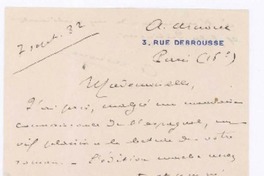 7 sept. 32
3, RUE DEBROUSSE
Paris (16e)
Mademoiselle,
J'ai pris, malgré un
connaissance de l'espagnol, un
vif plaisir à la lecture de votre
roman. L'édition